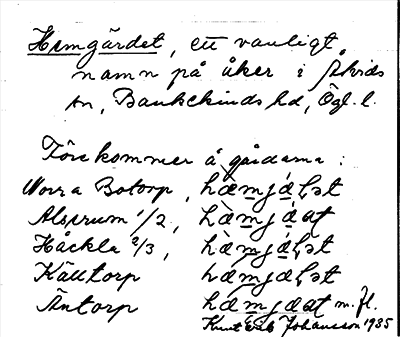 Hemgärdet, ett vanligt
namn på åker i Skeds
sn, Bankekinds hd, Ögl. l.
Förekommer å gårdarna:
Norra Botorp, hæ̀mjǽɽət
Alserum 1/2, hæ̀mjǽət
Håckla 2/3, hæ̀mjǽɽət
Källtorp hæ̀mjǽɽət
Äntorp hæ̀mjǽət m. fl.
Knut Erik Johansson 1935